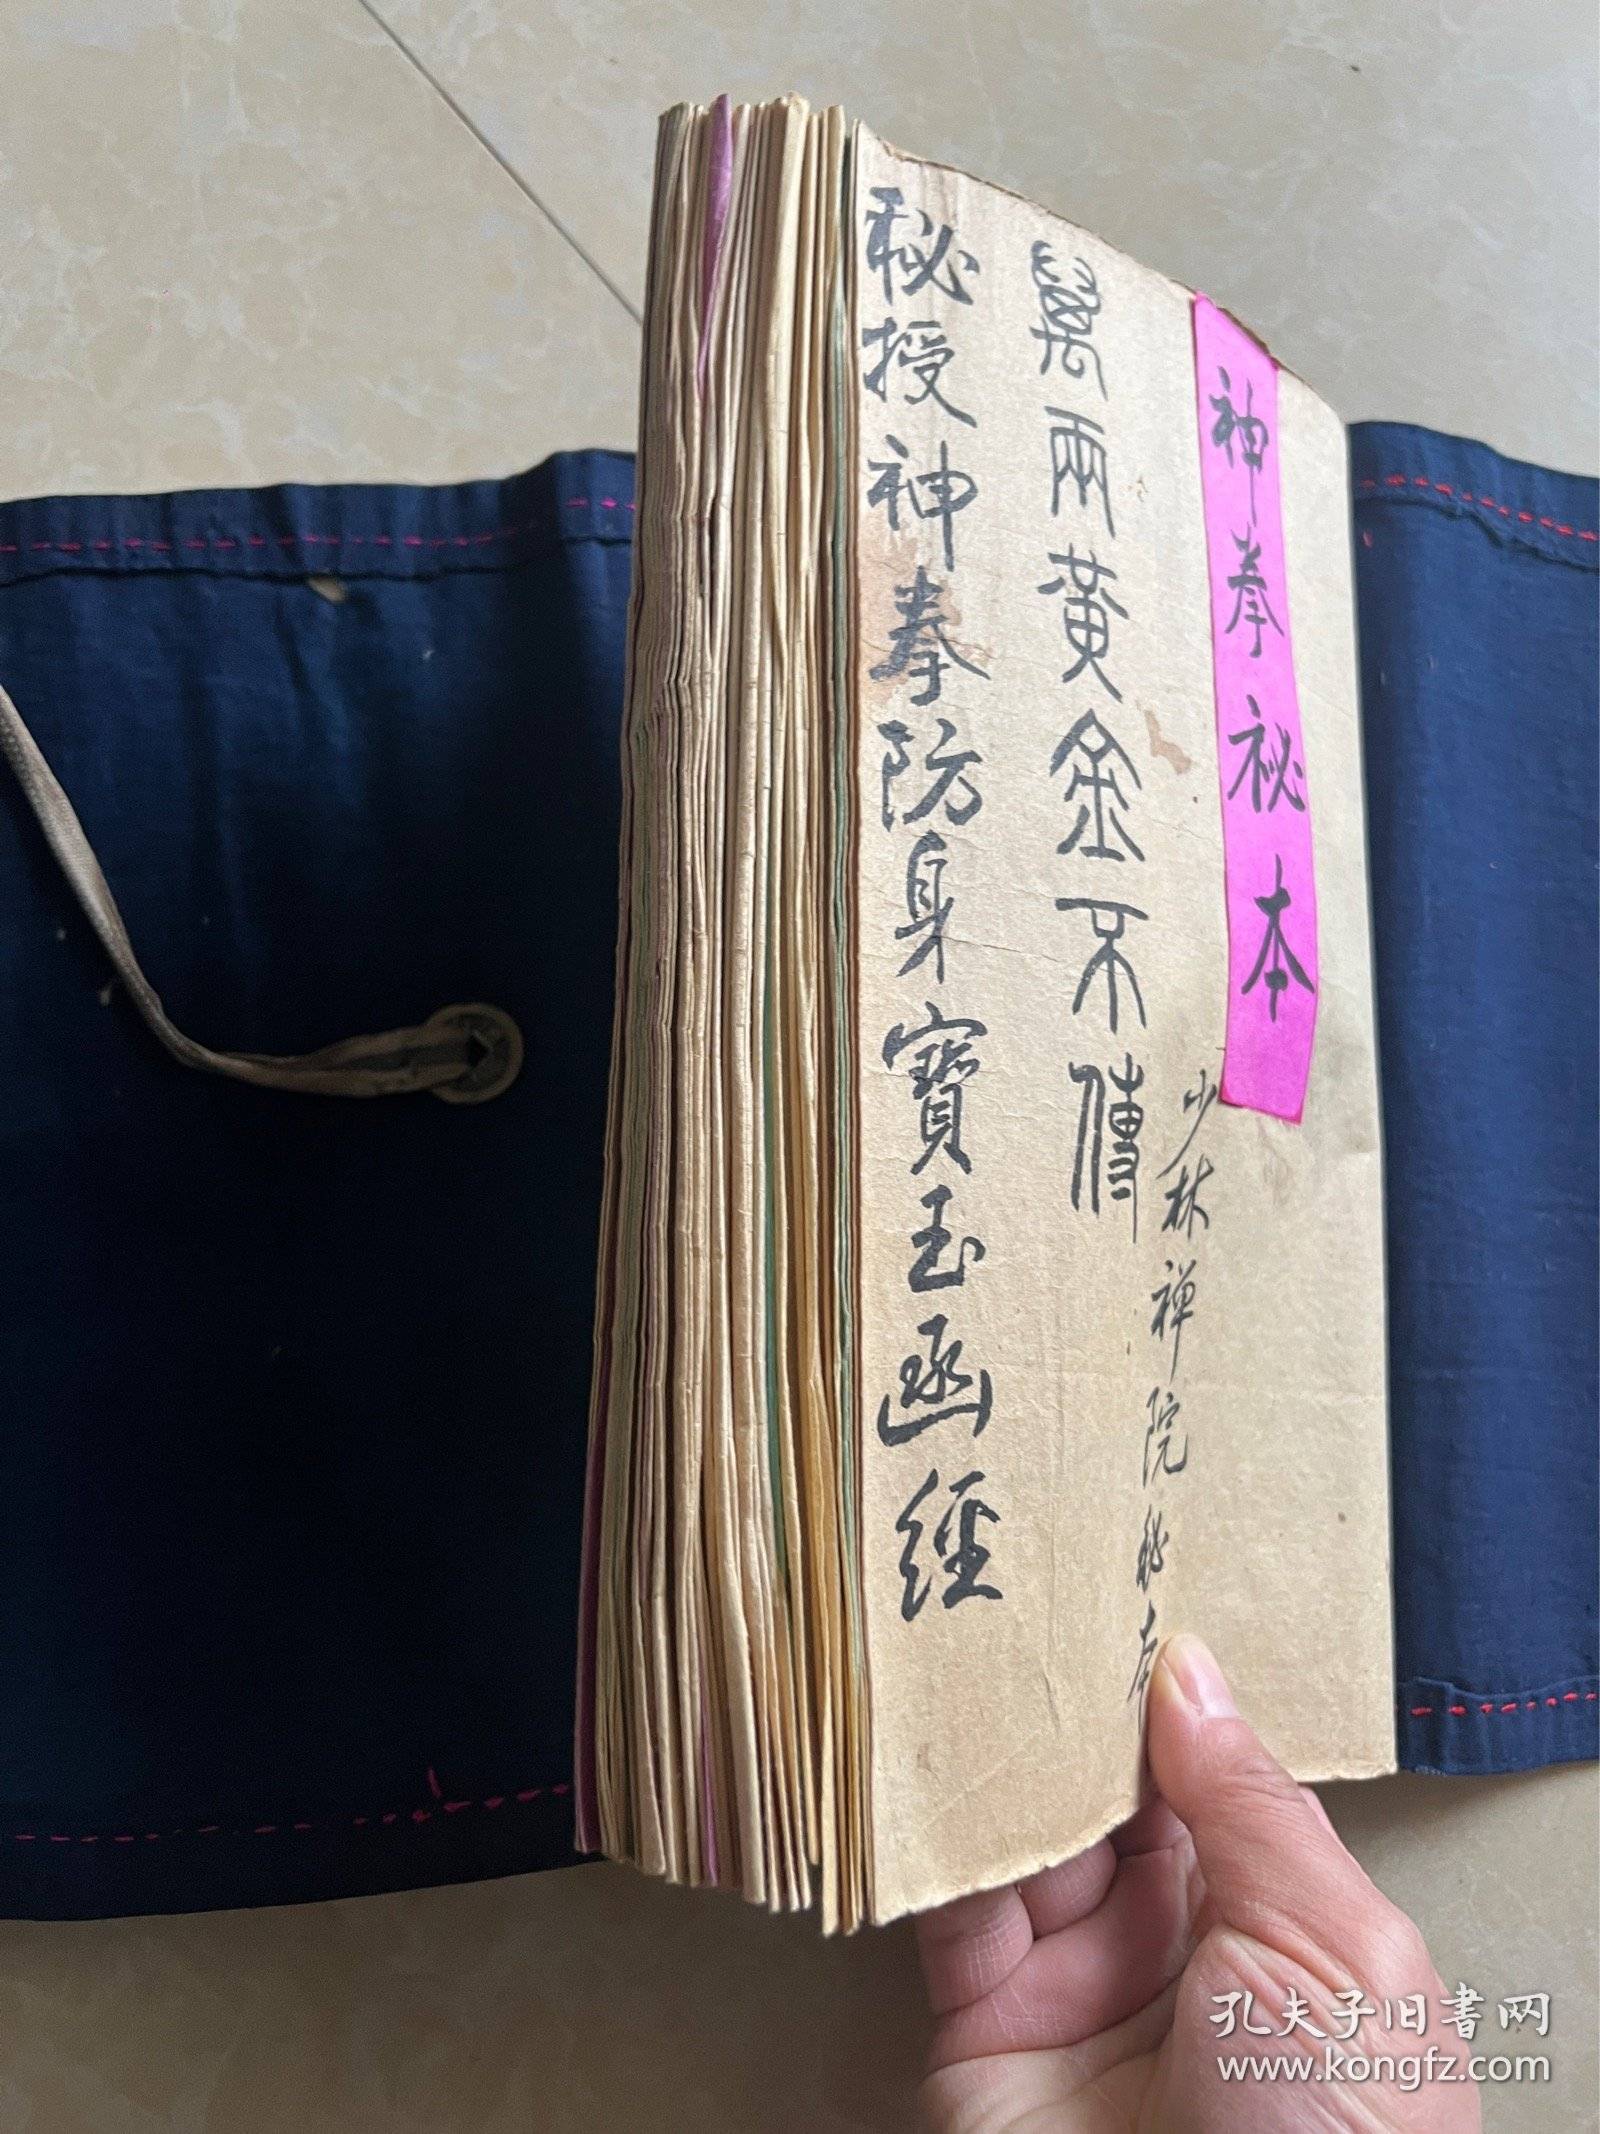 神拳秘本
少林禅院秘本
萬兩黃金不傳
秘授神拳防身寶玉函經
孔夫子旧书网
www.kongfz.com